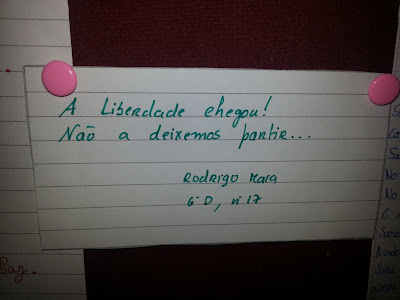 A Liberdade chegou!
Não a deixemos partir...
Rodrigo Mara
6º D, nº 17
Paz.